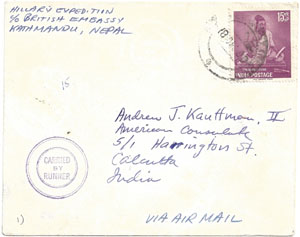 HILLARY EXPEDITION
c/o BRITISH EMBASSY
KATHMANDU, NEPAL
15 nP
INDIA POSTAGE
15
Andrew J. Kauffman, II
American Consulate
5/1 Harrington St.
Calcutta
India
CARRIED
BY
RUNNER
1)
VIA AIR MAIL